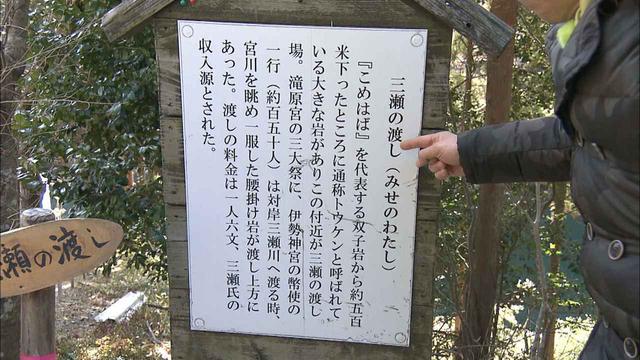 三瀬の渡し（みせのわたし）
『こめはば』を代表する双子岩から約五百
米下ったところに通称トウケンと呼ばれて
いる大きな岩がありこの付近が三瀬の渡し
場。滝原宮の三大祭に、伊勢神宮の幣使の
一行（約百五十人）は対岸三瀬川へ渡る時、
宮川を眺め一服した腰掛け岩が渡し上方に
あった。渡しの料金は一人六文、三瀬氏の
収入源とされた。
瀬の渡し